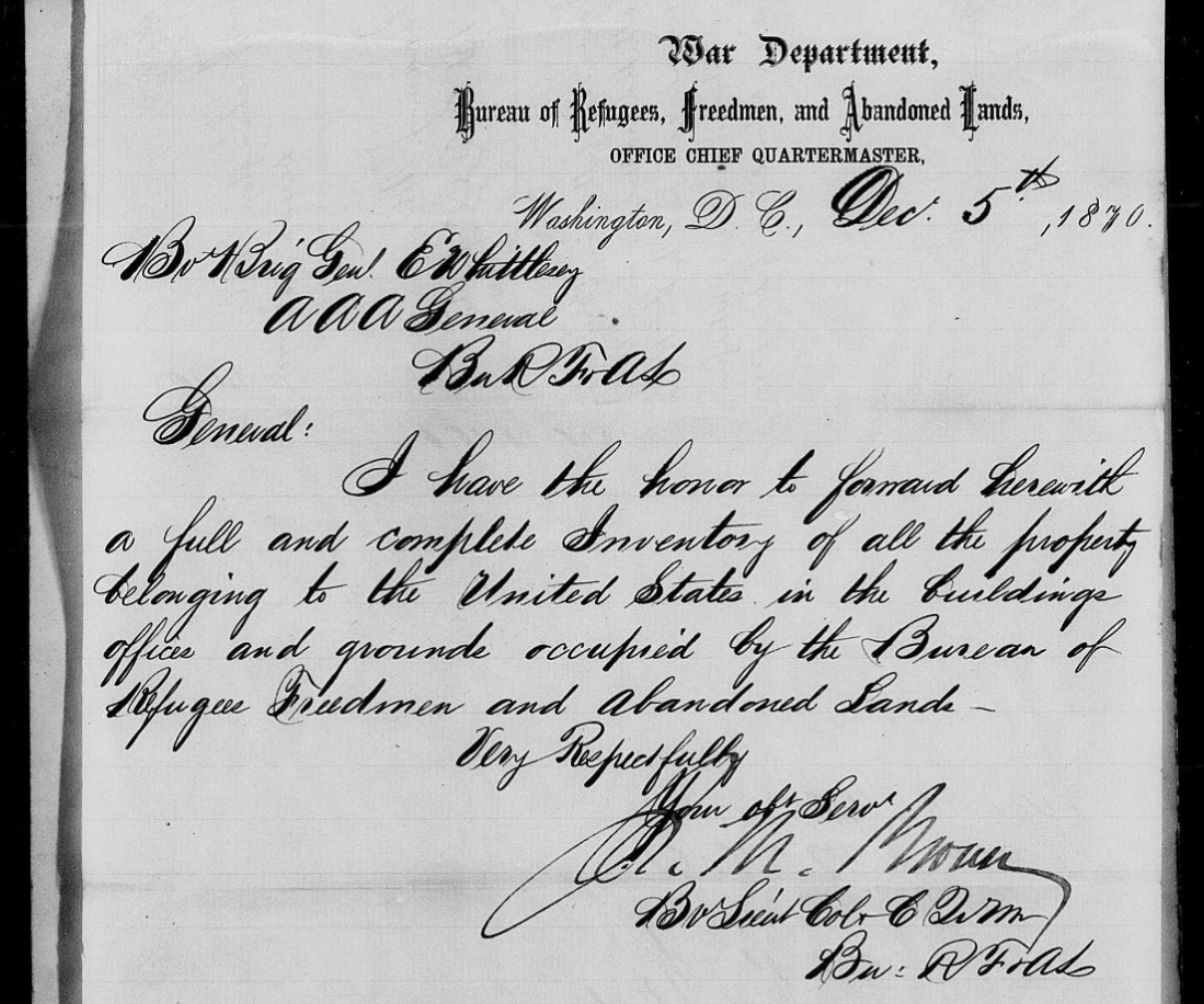 War Department,
Bureau of Refugees, Freedmen, and Abandoned Lands,
OFFICE CHIEF QUARTERMASTER,
Washington, D. C., Dec. 5th, 1870.
Bvt Brig Genl. E Whittlesey
A A A General
Bu R F & A L
General:
I have the honor to forward herewith
a full and complete Inventory of all the property
belonging to the United States in the buildings
offices and grounds occupied by the Bureau of
Refugees Freedmen and Abandoned Lands —
Very Respectfully
Your obt Servt
M.
Bvt Lieut Col & C Qr M
Bu: R F & A L